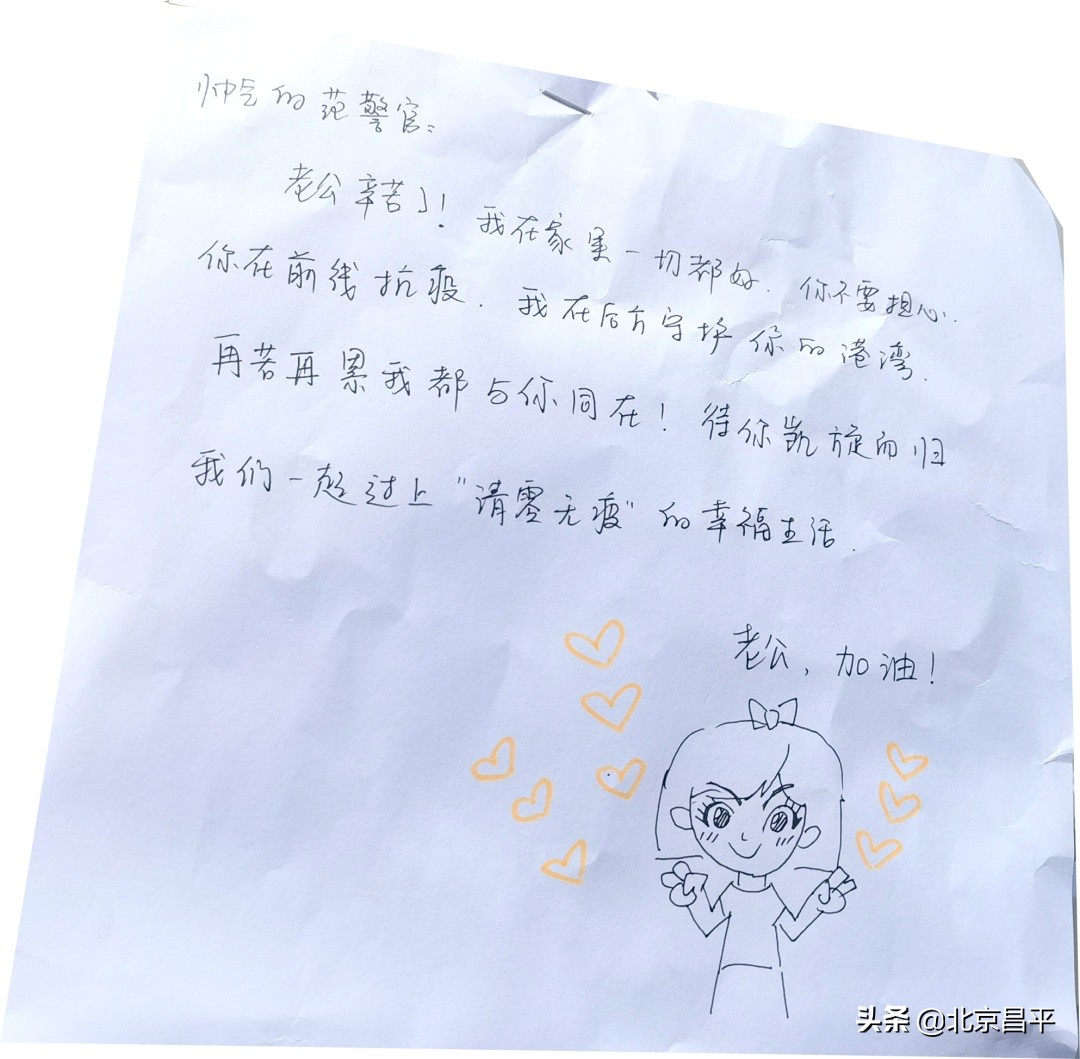 帅气的范警官：
老公辛苦了！我在家里一切都好.你不要担心.
你在前线抗疫.我在后方守护你的港湾.
再苦再累我都与你同在！待你凯旋而归
我们一起过上“清零无疫”的幸福生活.
老公，加油！
头条 @北京昌平